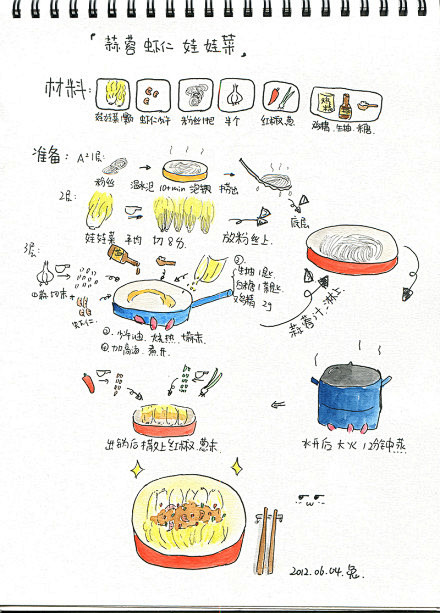 「蒜蓉虾仁娃娃菜」
材料:
娃娃菜1颗 虾仁少许 粉丝1把 半个 红椒.葱 鸡精.生抽.米糖
准备: A²1层:
粉丝 温水泡10+min 泡软 捞出
2层:
娃娃菜 平均 切8分 放粉丝上.
底层
3层:
切末
虾仁
② 生抽1匙
白糖1茶匙
鸡精 2g
①. 少许油.烧热.
④加高汤.煮开.
蒜蓉汁.淋上
出锅后撒上红椒.葱末.
水开后大火12分钟蒸
2012.06.04.